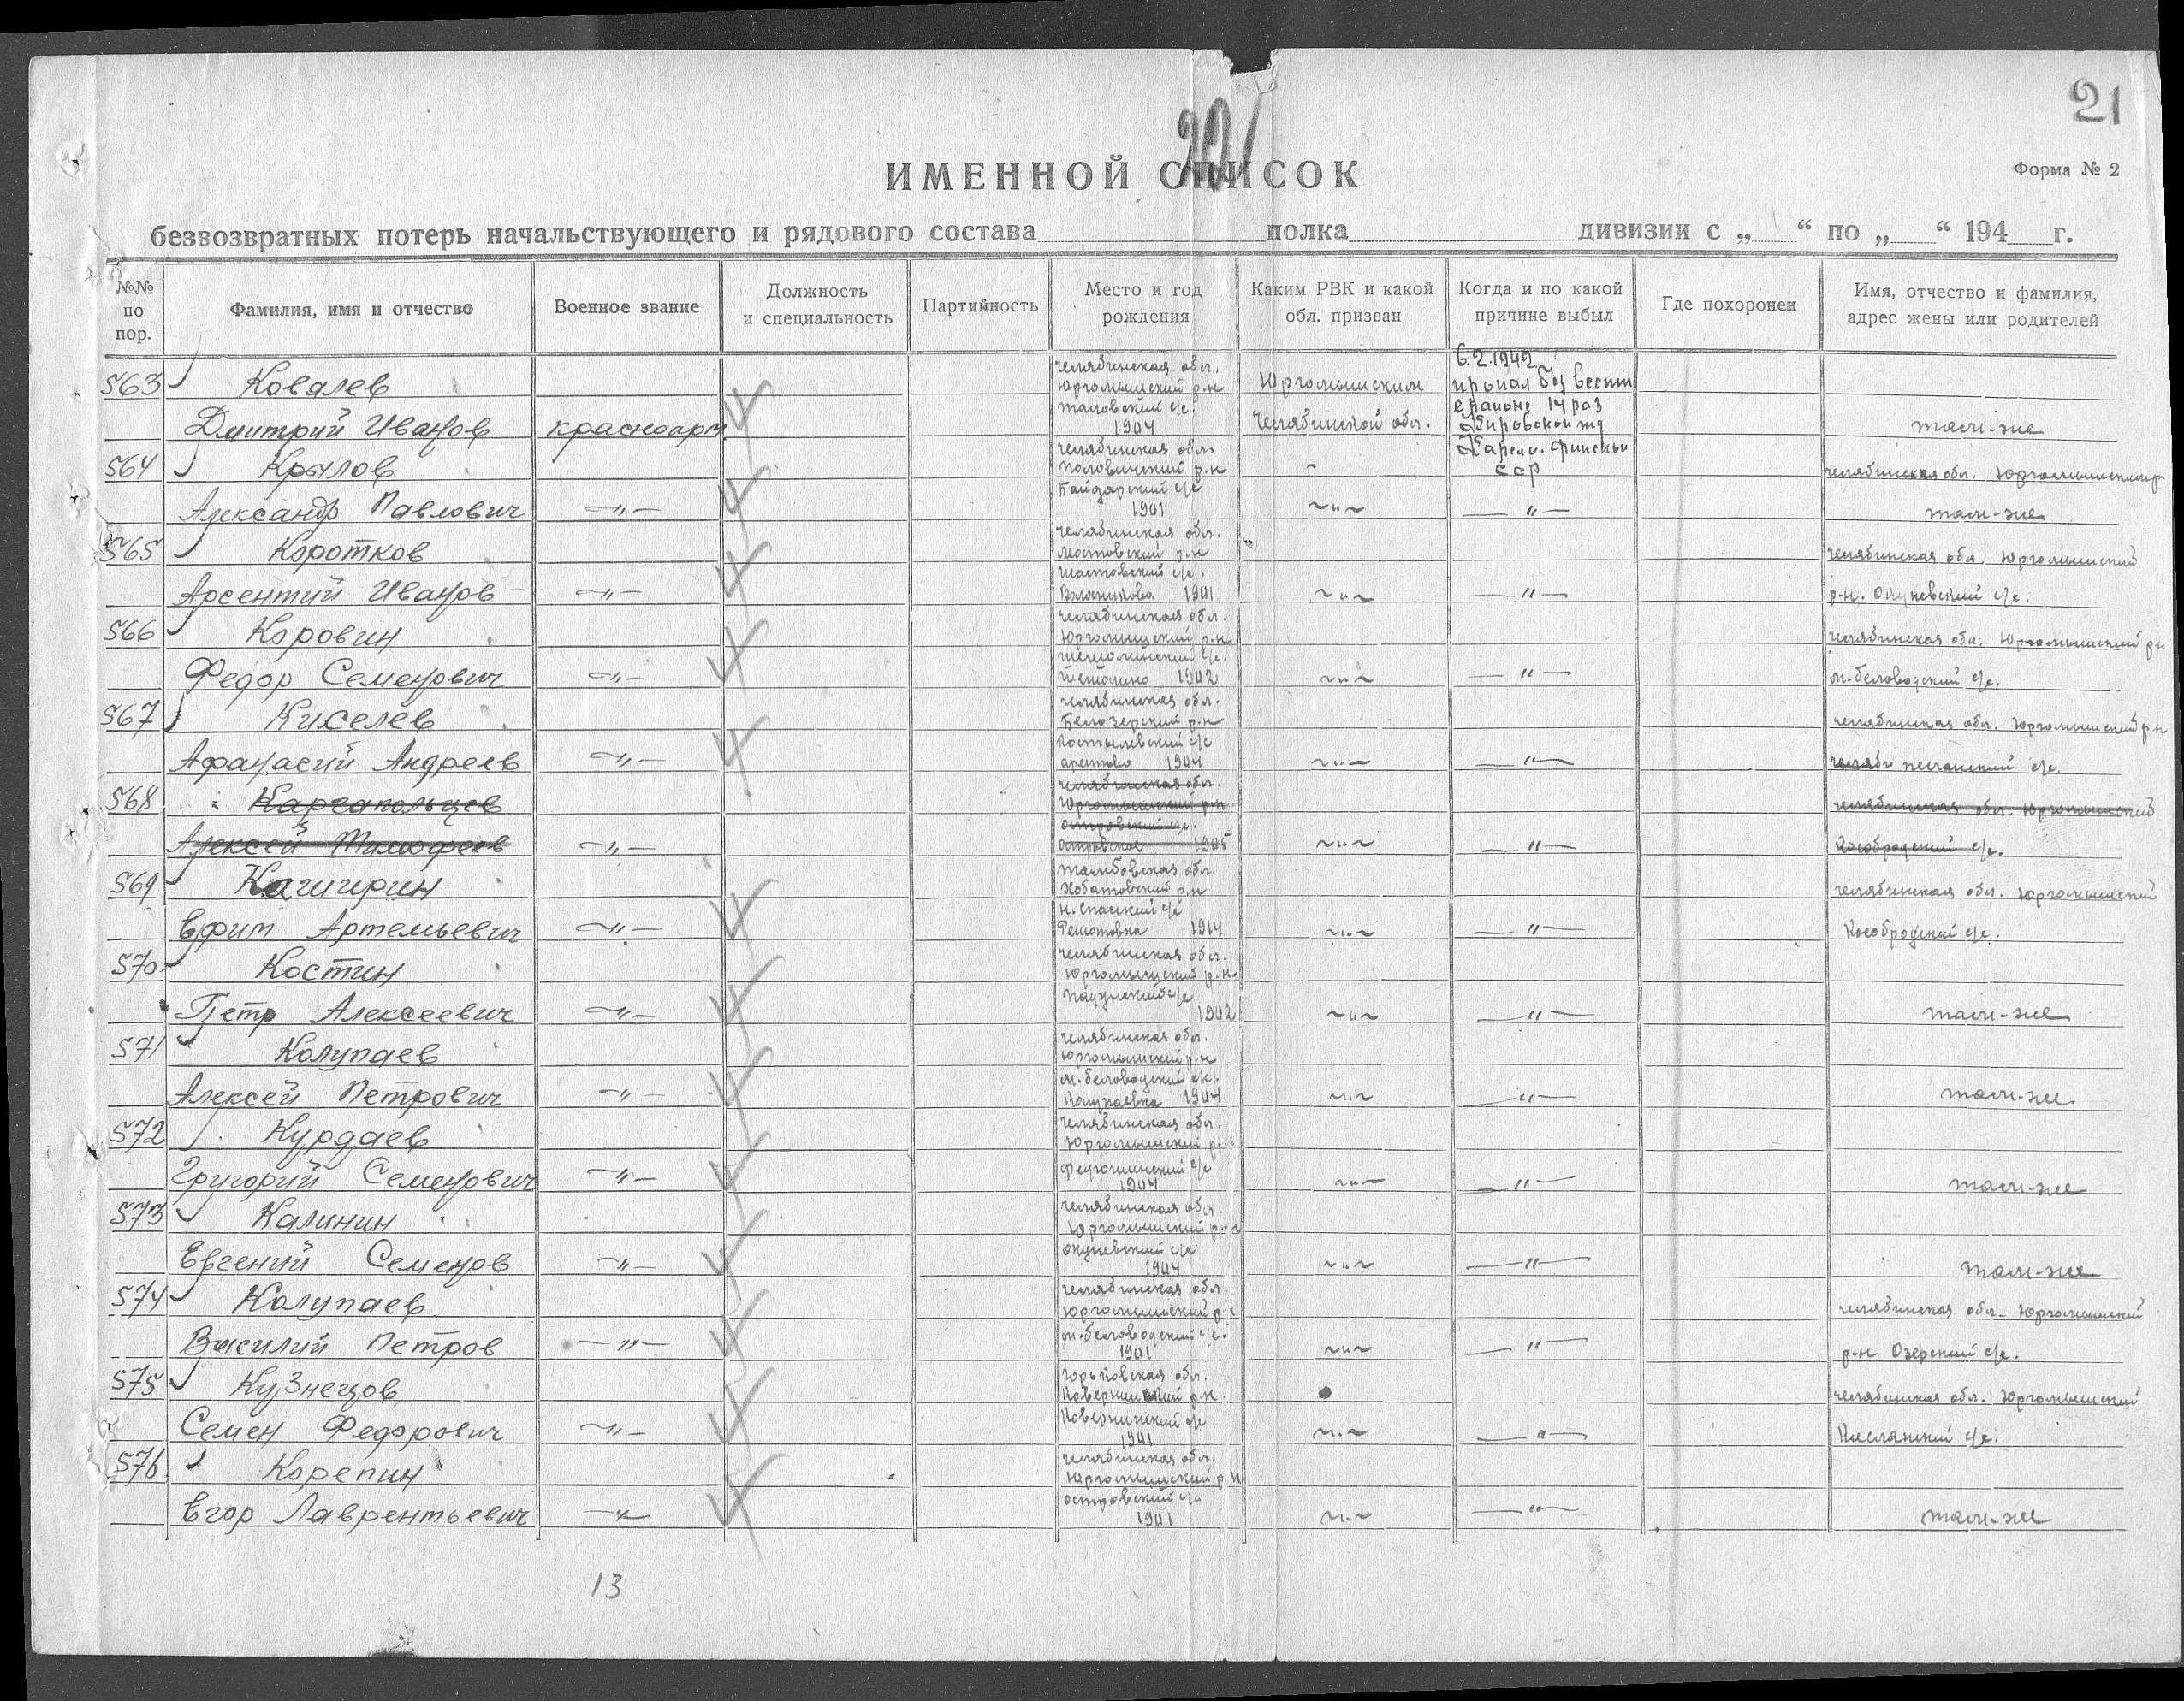 21
221
ИМЕННОЙ СПИСОК
Форма № 2
безвозвратных потерь начальствующего и рядового состава полка дивизии с „ “ по „ “ 194 г.
№№ по пор.
Фамилия, имя и отчество
Военное звание
Должность и специальность
Партийность
Место и год рождения
Каким РВК и какой обл. призван
Когда и по какой причине выбыл
Где похоронен
Имя, отчество и фамилия, адрес жены или родителей
563 Ковалев
Дмитрий Иванов красноарм
челябинская обл.
Юргамышский р-н
1904
Юргамышским
Челябинской обл.
6.2.1942
пропал без вести
в районе 14 раз
Кировской жд
Карело. Финской
ССР
там-же
564 Крылов
Александр Павлович —"—
челябинская обл.
Половинский р-н
Байдарский с/с
1901
~"~ —"—
челябинская обл. Юргамышский р-
там-же
565 Коротков
Арсентий Иванов —"—
челябинская обл.
Мостовский р-н
1901
~"~ —"—
челябинская обл. Юргамышский
р-н. Окуневский с/с.
566 Коровин
Федор Семенович —"—
челябинская обл.
Юргамышский р-н
1902
~"~ —"—
челябинская обл. Юргамышский р-н
м-беловодский с/с.
567 Киселев
Афанасий Андреев —"—
челябинская обл.
Белозерский р-н
Костылевский с/с
1904
~"~ —"—
челябинская обл. Юргамышский р-н
песчанский с/с.
568 Каргапольцев
Алексей Тимофеев —"—
челябинская обл.
Юргамышский р-н
островский с/с.
Островское 1905
~"~ —"—
челябинская обл. Юргамышский
Кособродский с/с.
569 Каширин
Ефим Артемьевич —"—
тамбовская обл.
Хобатовский р-н
н. спасский с/с
1914
~"~ —"—
челябинская обл. Юргамышский
Кособродский с/с.
570 Костин
Петр Алексеевич —"—
челябинская обл.
Юргамышский р-н.
1902
~"~ —"—
там-же
571 Колупаев
Алексей Петрович —"—
челябинская обл.
Юргамышский р-н
м-беловодский с/с.
Колупаевка 1904
~"~ —"—
там-же
572 Курдаев
Григорий Семенович —"—
челябинская обл.
Юргамышский р-н
1904
~"~ —"—
там-же
573 Калинин
Евгений Семенов —"—
челябинская обл.
Юргамышский р-н
окуневский с/с
1904
~"~ —"—
там-же
574 Колупаев
Василий Петров —"—
челябинская обл.
Юргамышский р-н
м-беловодский с/с.
1901
~"~ —"—
челябинская обл. Юргамышский
р-н Озерский с/с.
575 Кузнецов
Семен Федорович —"—
горьковская обл.
Ковернинский р-н.
Ковернинский с/с
1901
~"~ —"—
челябинская обл. Юргамышский
Кислянский с/с.
576 Корепин
Егор Лаврентьевич —"—
челябинская обл.
Юргамышский р-н
островский с/с
1901
~"~ —"—
там-же
13